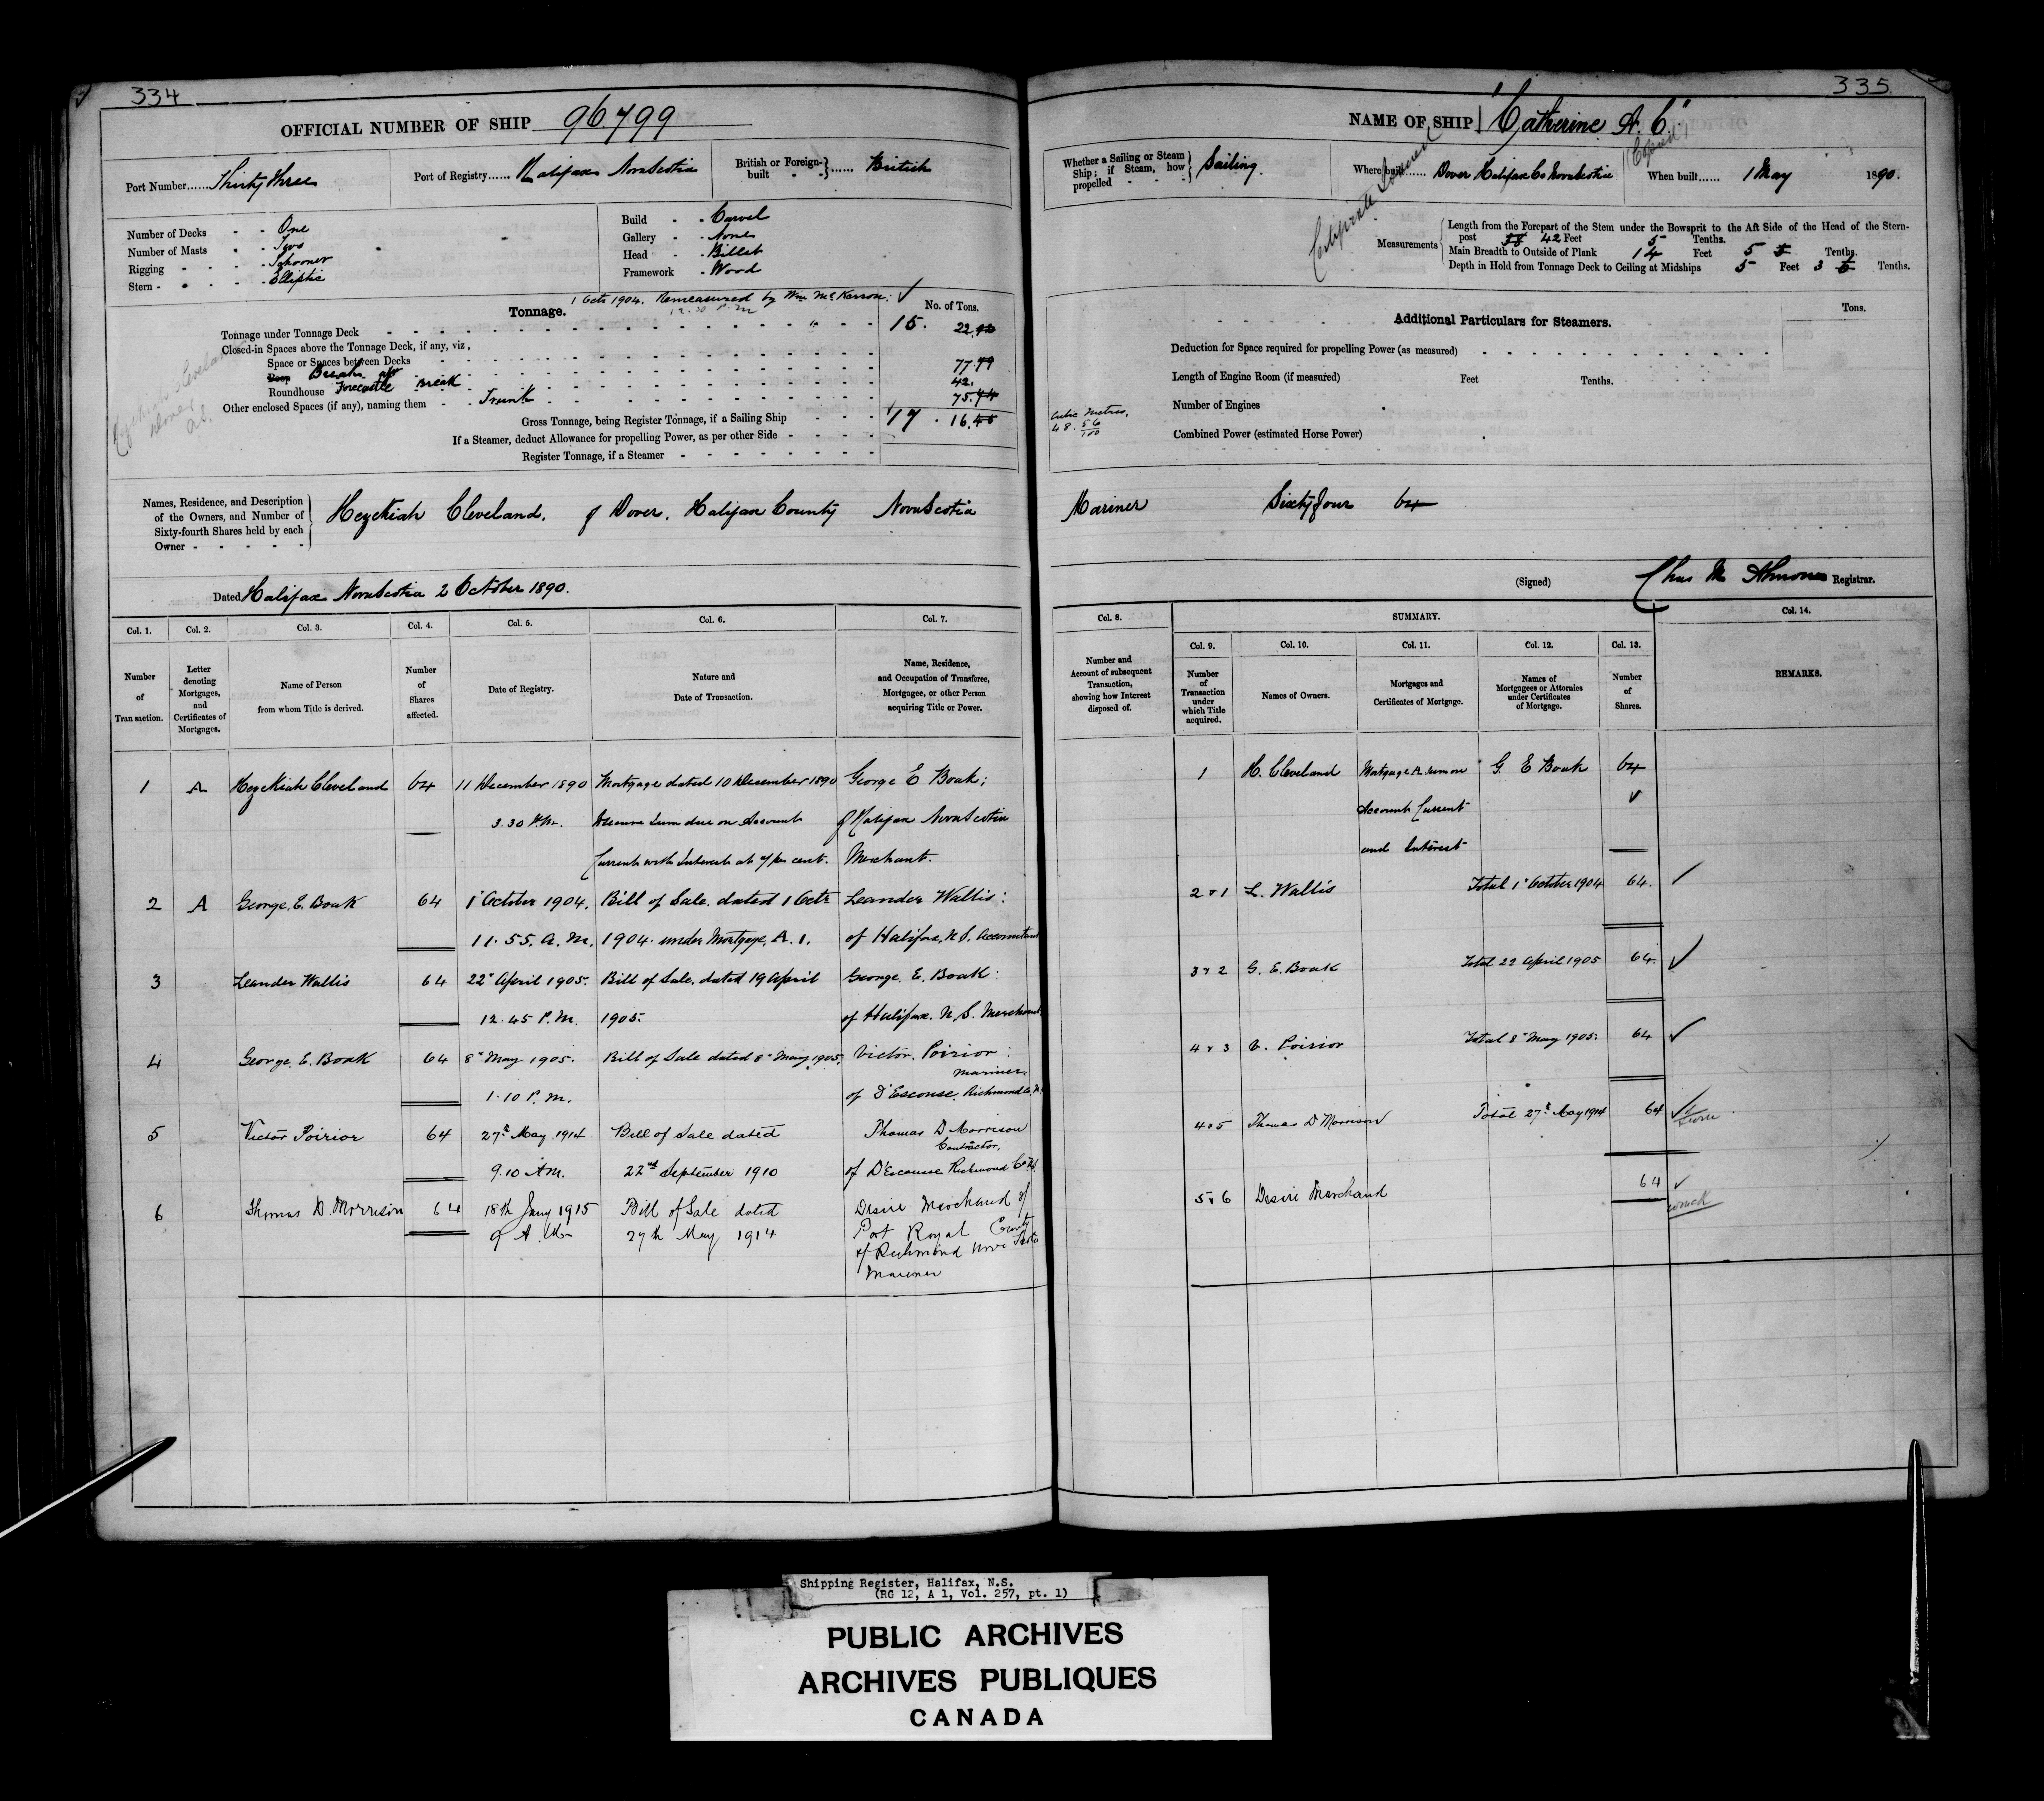 334
OFFICIAL NUMBER OF SHIP 96.799
Port Number...... Thirty three
Port of Registry...... Halifax Nova Scotia
British or Foreign-built - - } ...... British
Number of Decks - - One
Number of Masts - - Two
Rigging - - - - Schooner
Stern - - - - Elliptic
Build - - Carvel
Gallery - - None
Head - - Billet
Framework - Wood
1 Octr 1904. Remeasured by Wm McKerron. ✓
12.30 P.M
Tonnage.
No. of Tons.
Tonnage under Tonnage Deck - - - 15. 22
Closed-in Spaces above the Tonnage Deck, if any, viz,
Space or Spaces between Decks
Poop Break aft 77.79
Roundhouse Forecastle Break 42.
Other enclosed Spaces (if any), naming them - - Trunk 75.74
Gross Tonnage, being Register Tonnage, if a Sailing Ship - - - 17. 16.46
If a Steamer, deduct Allowance for propelling Power, as per other Side - - - -
Register Tonnage, if a Steamer - - - -
Names, Residence, and Description
of the Owners, and Number of
Sixty-fourth Shares held by each
Owner - - - - -
Hezekiah Cleveland. of Dover. Halifax County Nova Scotia
Dated Halifax Nova Scotia 2 October 1890.
Col. 1. Col. 2. Col. 3. Col. 4. Col. 5. Col. 6. Col. 7.
Number of Transaction.
Letter denoting Mortgages, and Certificates of Mortgages.
Name of Person from whom Title is derived.
Number of Shares affected.
Date of Registry.
Nature and Date of Transaction.
Name, Residence, and Occupation of Transferee, Mortgagee, or other Person acquiring Title or Power.
1 A Hezekiah Cleveland 64 11 December 1890 Mortgage dated 10 December 1890 George E Boak;
3.30 P.M. to secure Sum due on Account of Halifax Nova Scotia
Current with Interest at 7 per cent. Merchant.
2 A George. E. Boak 64 1st October 1904. Bill of Sale. dated 1 Octr Leander Wallis:
11.55. A.M. 1904. under Mortgage, A. 1. of Halifax, N.S. Accountant
3 Leander Wallis 64 22" April 1905. Bill of Sale. dated 19 April George. E. Boak:
12.45 P.M. 1905. of Halifax. N.S. Merchant
4 George. E. Boak 64 8" May 1905. Bill of Sale dated 8" May 1905. Victor. Poirior:
Mariner.
1.10 P.M. of D'Escouse. Richmond Co. N.
5 Victor Poirior 64 27th May 1914 Bill of Sale dated Thomas D Morrison
Contractor,
9.10 AM. 22nd September 1910 of D'Escousse Richmond Co N.S.
6 Thomas D. Morrison 64 18th Jany 1915 Bill of Sale dated Desire Marchand of
9 A.M. 27th May 1914 Port Royal County
of Richmond Nova Scotia
Mariner
335
NAME OF SHIP "Catherine A. C."
Whether a Sailing or Steam
Ship; if Steam, how
propelled - - - - Sailing.
Where built...... Dover Halifax Co Nova Scotia
When built...... 1 May 1890.
Measurements
Length from the Forepart of the Stem under the Bowsprit to the Aft Side of the Head of the Stern-
post 42 Feet 5 Tenths.
Main Breadth to Outside of Plank 14 Feet 5 5 Tenths.
Depth in Hold from Tonnage Deck to Ceiling at Midships 5 Feet 3 6 Tenths.
Additional Particulars for Steamers.
Tons.
Deduction for Space required for propelling Power (as measured)
Length of Engine Room (if measured) Feet Tenths.
Number of Engines
Combined Power (estimated Horse Power)
Cubic Metres,
48.56/100
Mariner Sixty four 64
(Signed) Chas M Almon Registrar.
Col. 8. SUMMARY. Col. 14.
Col. 9. Col. 10. Col. 11. Col. 12. Col. 13.
Number and Account of subsequent Transaction, showing how Interest disposed of.
Number of Transaction under which Title acquired.
Names of Owners.
Mortgages and Certificates of Mortgage.
Names of Mortgagees or Attornies under Certificates of Mortgage.
Number of Shares.
REMARKS.
1 H. Cleveland Mortgage A. G. E Boak 64
Account Current ✓
and Interest
2 & 1 L. Wallis Total 1" October 1904 64. ✓
3 & 2 G. E. Boak Total 22 April 1905 64. ✓
4 & 3 V. Poirior Total 8" May 1905. 64 ✓
4 & 5 Thomas D Morrison Total 27th May 1914 64 ✓
5 & 6 Desire Marchand 64 ✓
Shipping Register, Halifax, N.S.
(RG 12, A 1, Vol. 257, pt. 1)
PUBLIC ARCHIVES
ARCHIVES PUBLIQUES
CANADA